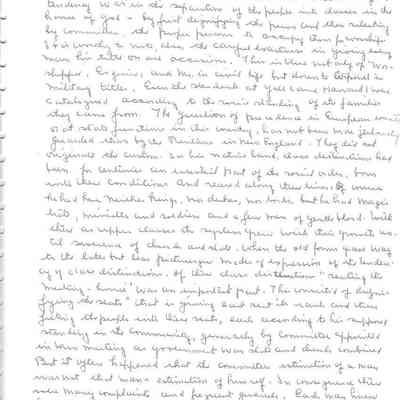 tendency was in the separation of the people into classes in the
house of god - by first dignifying the pews and then selecting
by committee, the proper persons to occupy them
It is worthy to note, also, the careful exactness in giving every
man his title on all occasions. This is true not only of Wor-
shipper, Esquire, and Mr. in civil life but down to Corporal in
military titles. Even the students at Yale and Harvard were
catalogued according to the social standing of the families
they came from. The question of precedence in European courts
or at state functions in this country, has not been more jealously
guarded than by the Puritans in New England. They did not
originate the custom. In his native land, class distinctions had
been for centuries an essential part of the social order, born
under these conditions and reared along these lines, of course
he had here neither kings, nor dukes, nor lords but he had magis-
trates, ministers and and a few men of gentle blood. With
these as upper classes the system grew until their growth
of church and state. When the old forms gave way
to the latter but less picturesque modes of expression of the tenden-
cy of class distinction. Of these class distinction "seating the
meeting-house" was an important part. This consisted of digni-
fying the seats, that is giving each seat its rank and then
filling the people into these seats, each according to his supposed
standing in the community, generally by committee appointed
in town meeting as government was state and church combined
But it often happened that the committee estimation of a man
was not that man's estimation of himself. In consequence there
were many complaints and frequent quarrels. Each man knew